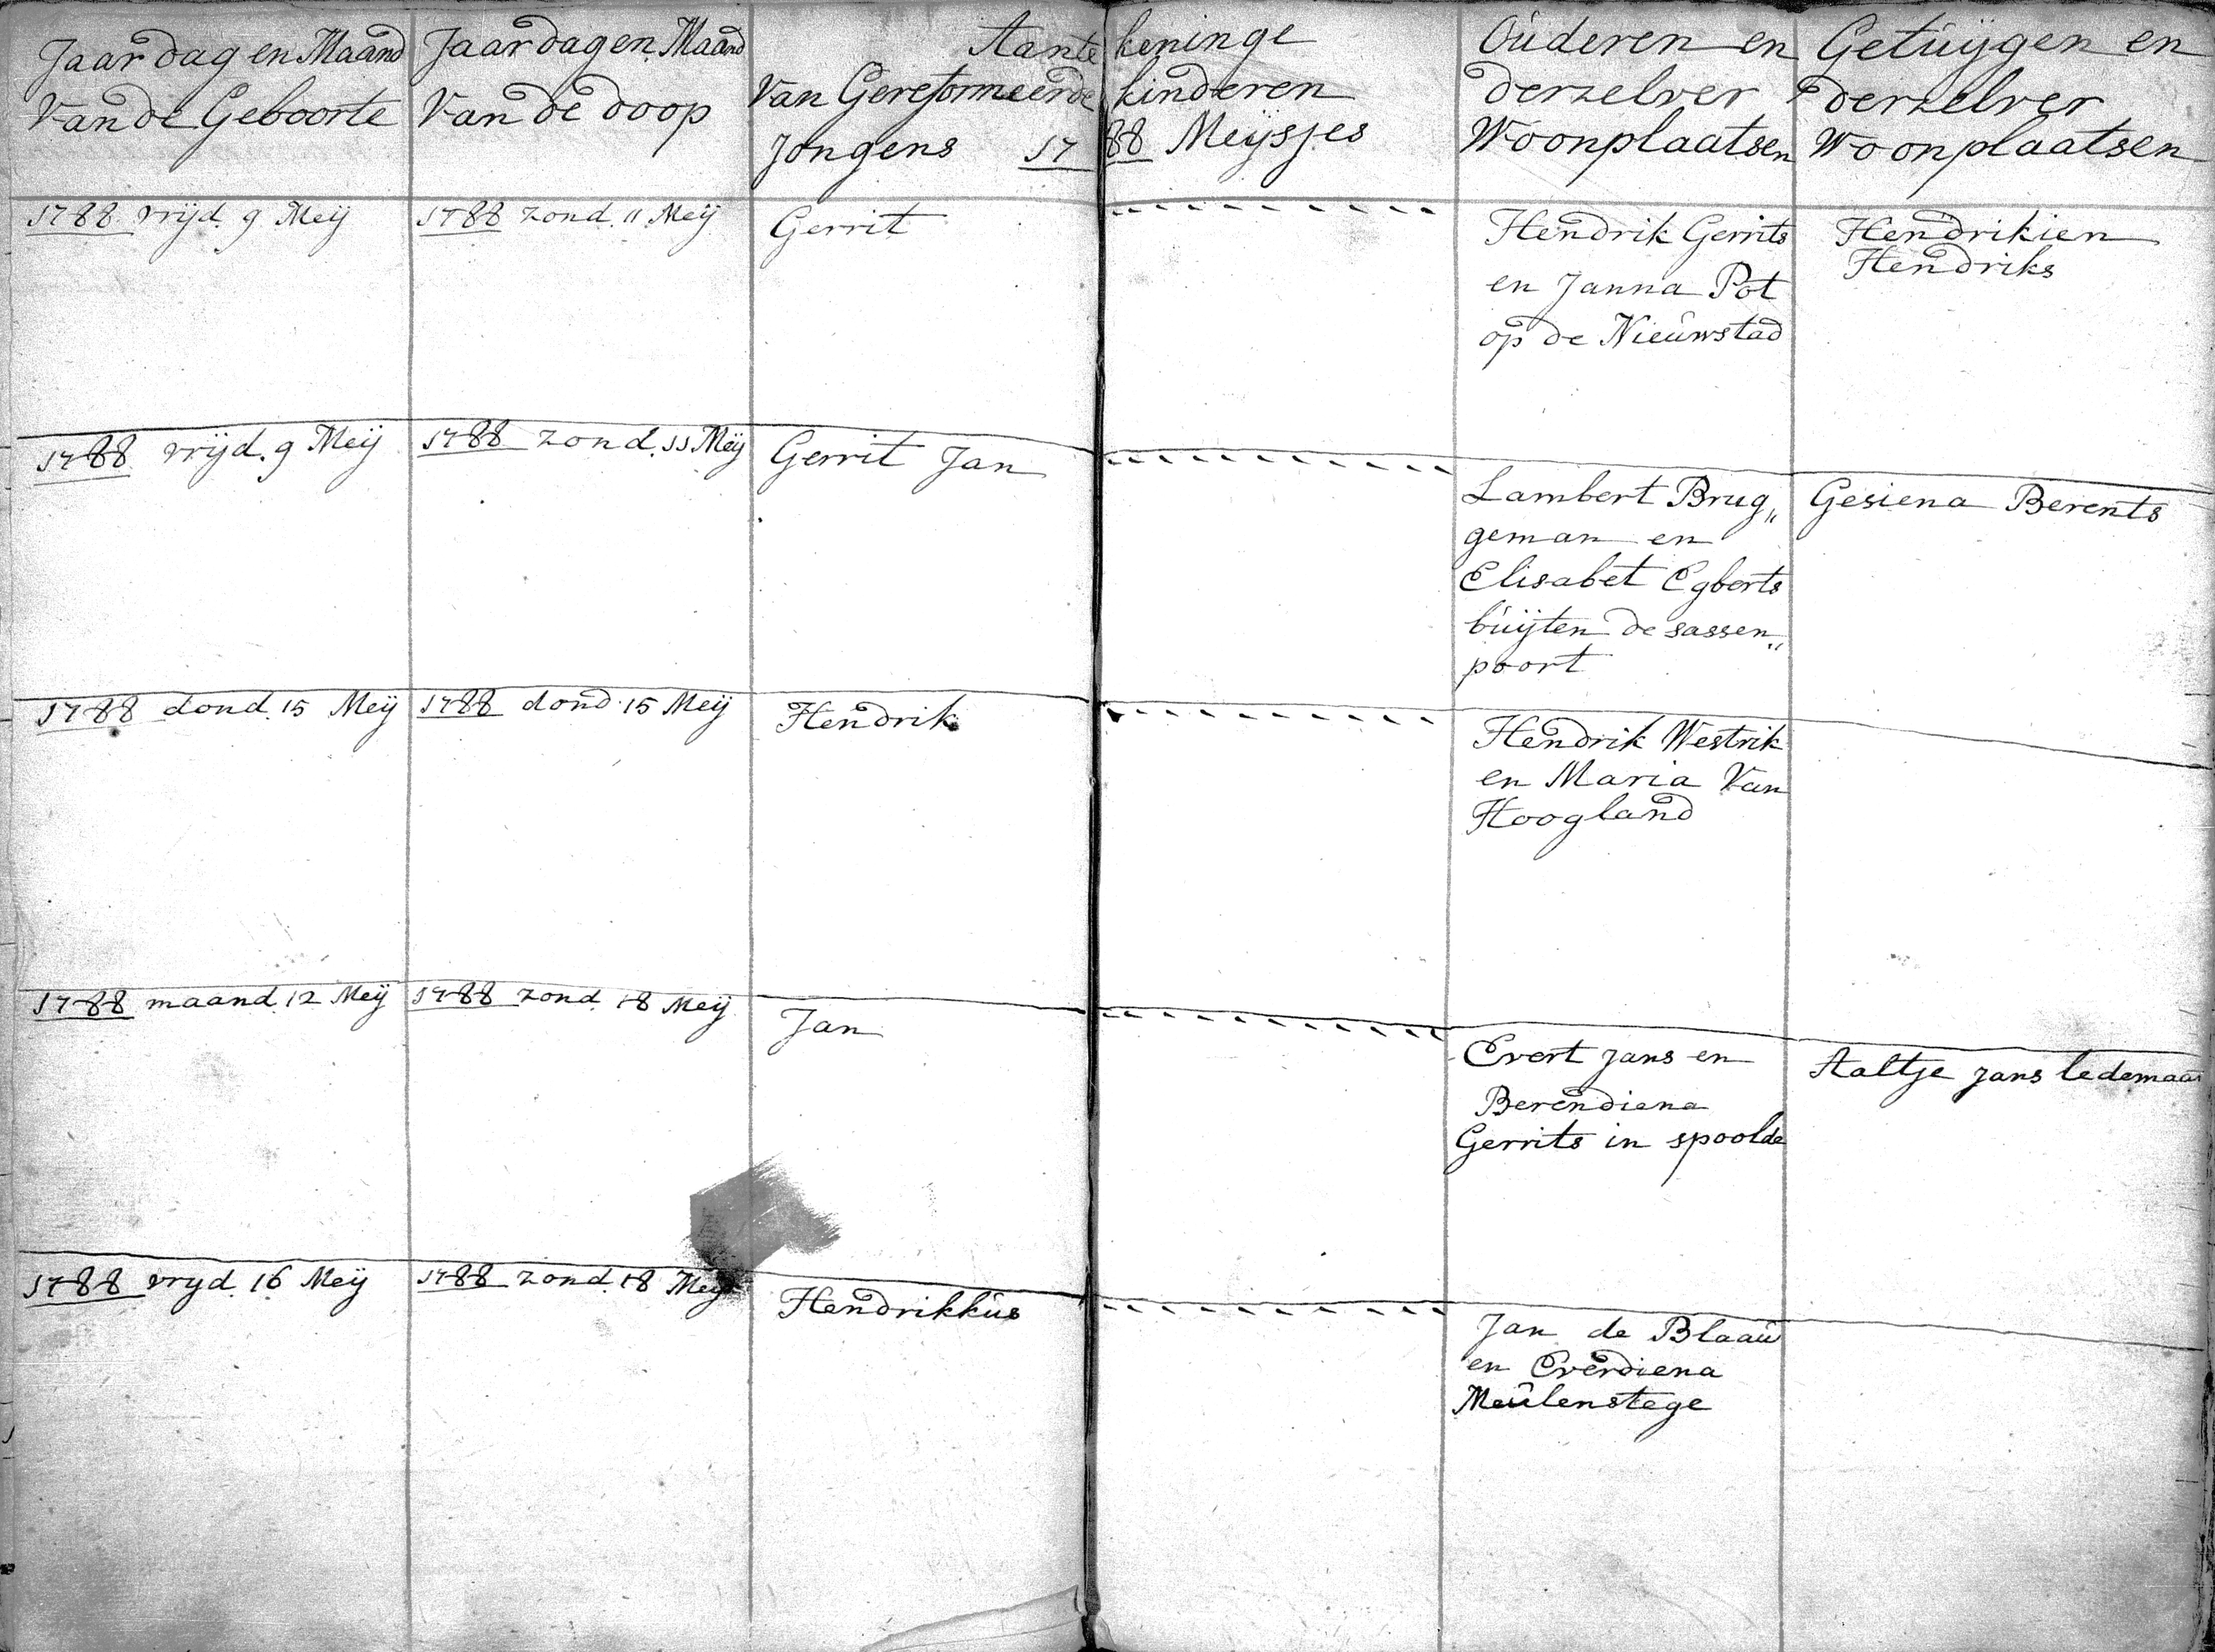 Jaar dag en Maand
Van de Geboorte
Jaar dag en Maand
Van de doop
Aante keninge
Van Gereformeerde kinderen
Jongens 17 88 Meijsjes
Oúderen en
derzelver
Woonplaatsen
Getúijgen en
derzelver
Woonplaatsen
1788 vrijd. 9 Meij
1788 zond. 11 Meij
Gerrit
Hendrik Gerrits
en Janna Pot
op de Nieúwstad
Hendrikien
Hendriks
1788 vrijd. 9 Meij
1788 zond. 11 Meij
Gerrit Jan
Lambert Brug„
geman en
Elisabet Egberts
búijten de sassen„
poort
Gesiena Berents
1788 dond. 15 Meij
1788 dond. 15 Meij
Hendrik
Hendrik Westrik
en Maria Van
Hoogland
1788 maand. 12 Meij
1788 zond. 18 Meij
Jan
Evert Jans en
Berendiena
Gerrits in spoolde
Aaltje Jans ledemaat
1788 vryd. 16 Meij
1788 zond. 18 Meij
Hendrikkús
Jan de Blaaú
en Everdiena
Meúlenstege